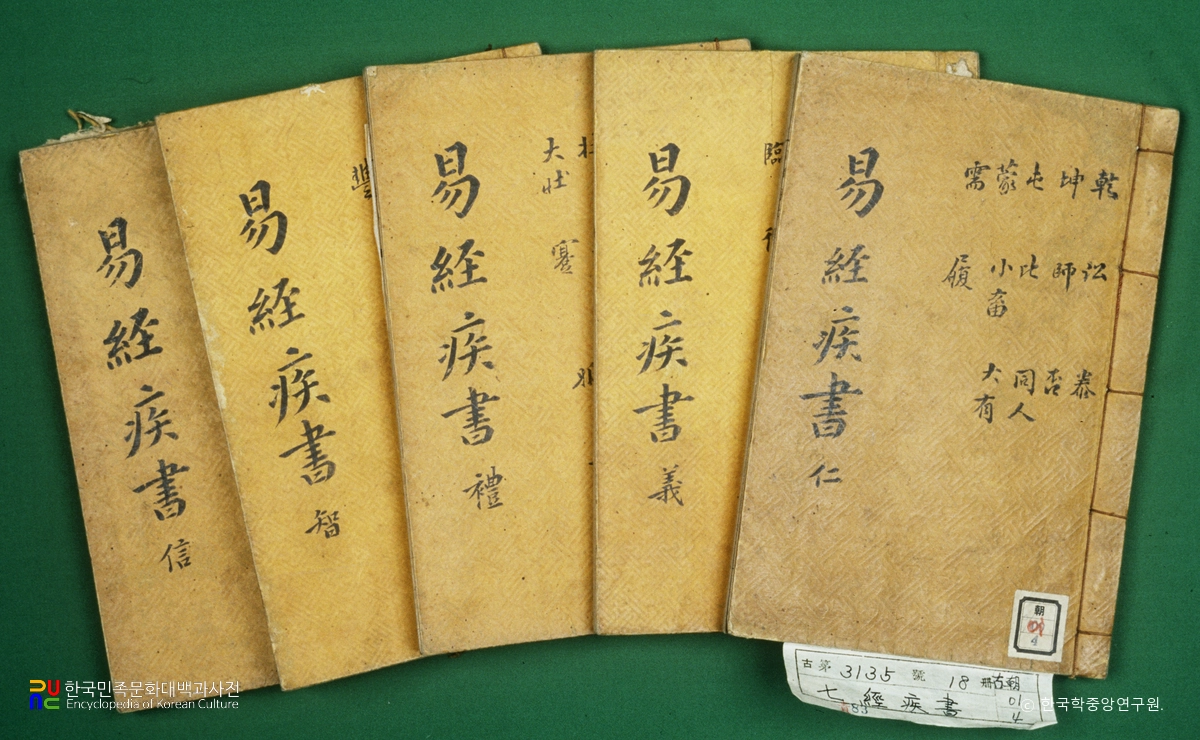 易經疾書 仁
乾 坤 屯 蒙 需
訟 師 比 小畜 履
泰 否 同人 大有
易経疾書 義
臨
易経疾書 禮
大壯
蹇
易経疾書 智
豐
易経疾書 信
朝
01
4
古第 3135 號 18 冊 古朝
01
4
七經疾書
한국민족문화대백과사전
Encyclopedia of Korean Culture
© 한국학중앙연구원.